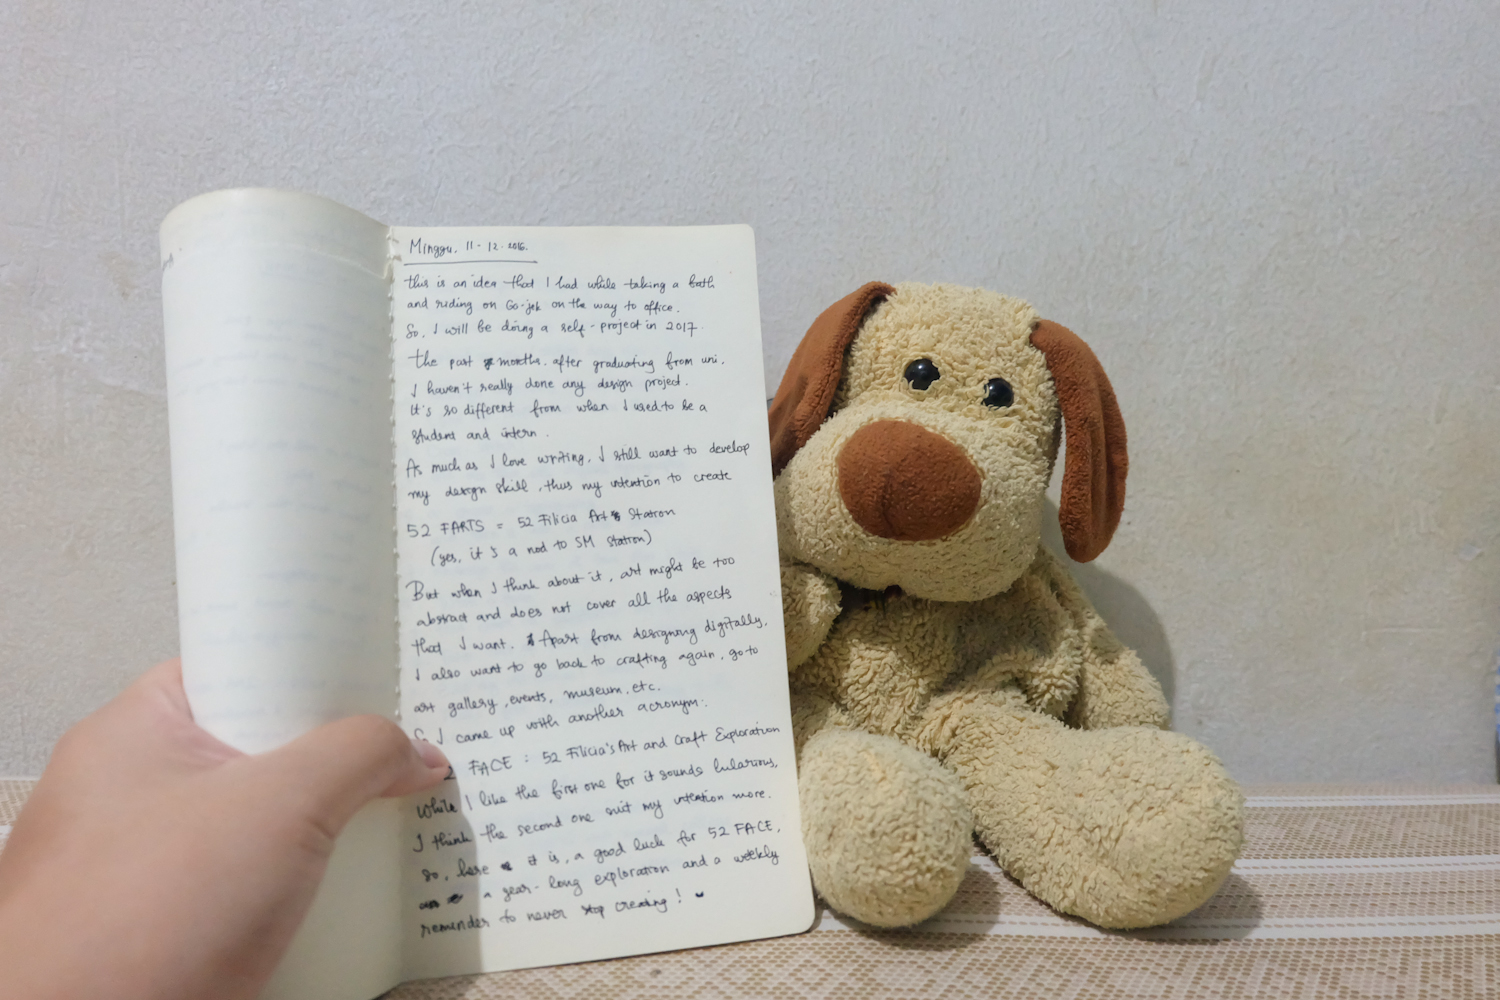 Minggu, 11 - 12 - 2016.
this is an idea that I had while taking a bath
and riding on Go-jek on the way to office.
So, I will be doing a self-project in 2017.
the past months, after graduating from uni,
I haven't really done any design project.
It's so different from when I used to be a
student and intern.
As much as I love writing, I still want to develop
my design skill, thus my intention to create
52 FARTS = 52 Filicia Art Station
(yes, it's a nod to SM Station)
But when I think about it, art might be too
abstract and does not cover all the aspects
that I want. Apart from designing digitally,
I also want to go back to crafting again, go to
art gallery, events, museum, etc.
So I came up with another acronym:
2 FACE : 52 Filicia's Art and Craft Exploration
While I like the first one for it sounds hilarious,
I think the second one suit my intention more.
So, here it is, a good luck for 52 FACE,
a year-long exploration and a weekly
reminder to never stop creating!